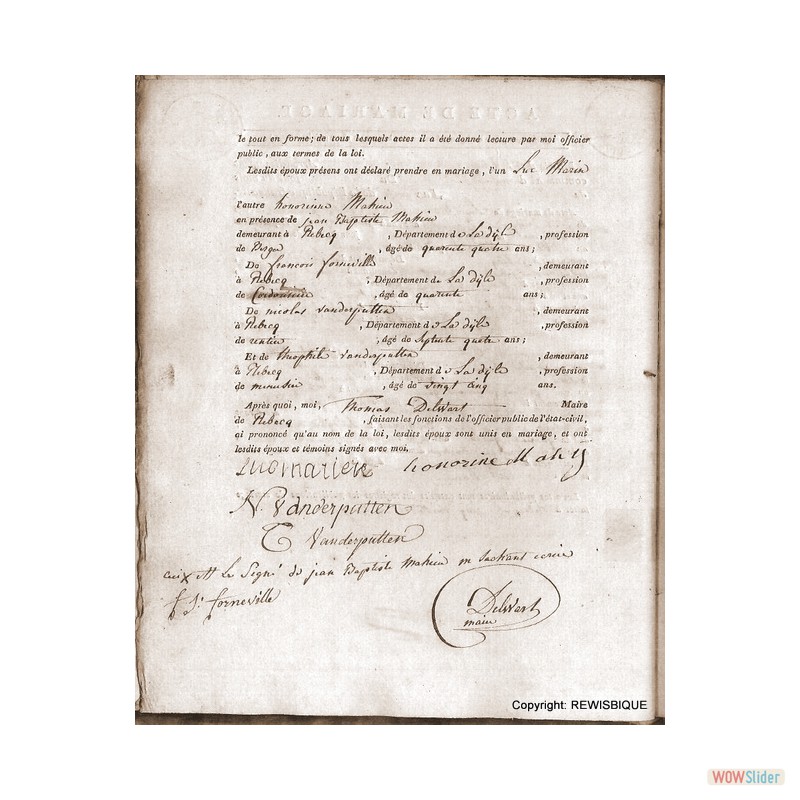 le tout en forme; de tous lesquels actes il a été donné lecture par moi officier
public, aux termes de la loi.
Lesdits époux présens ont déclaré prendre en mariage, l'un Luc Marin
l'autre honorinne Mahieu
en présence de jean Baptiste Mahieu
demeurant à Rebecq , Département de La dijle , profession
de Berger , âgé de quarente quatre ans;
De françois forneville , demeurant
à Rebecq , Département de La dijle , profession
de Cordonnier , âgé de quarente ans;
De nicolas vanderputten , demeurant
à Rebecq , Département de La dijle , profession
de rentier , âgé de septente quatre ans;
Et de théophile vanderputten , demeurant
à Rebecq , Département de La dijle , profession
de menusier , âgé de vingt cinq ans.
Après quoi, moi, Thomas Delwart Maire
de Rebecq , faisant les fonctions de l'officier public de l'état-civil,
ai prononcé qu'au nom de la loi, lesdits époux sont unis en mariage, et ont
lesdits époux et témoins signés avoc moi.
honorine Mahieu
N. Vanderputten
T Vanderputten
Le Signé de jean Baptiste Mahieu ne Sachant ecrire
f. J. forneville
Delwart
maire
Copyright: REWISBIQUE
WOWSlider